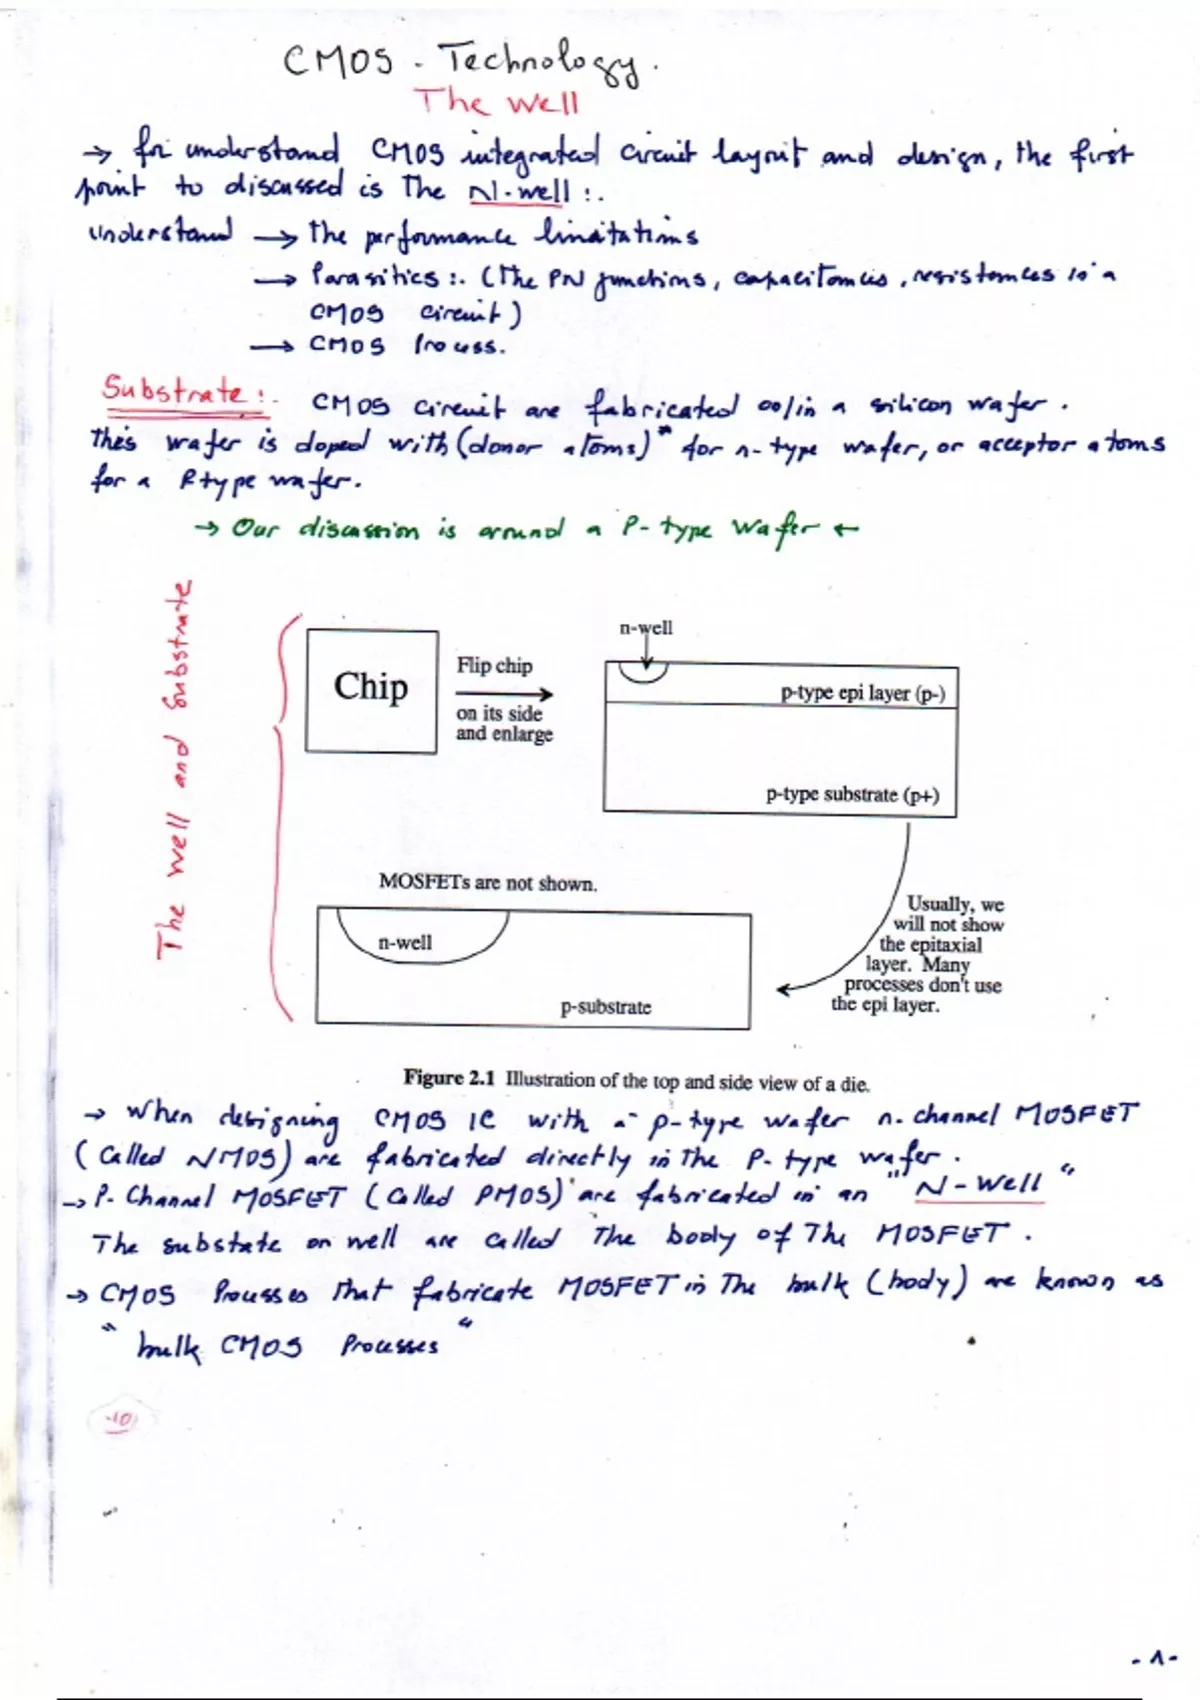 CMOS - Technology.
The well
→ for understand CMOS integrated circuit layout and design, the first
point to discussed is The N-well :.
understand → the performance limitations
→ Parasitics :. (The PN junctions, capacitances, resistances in a
CMOS circuit)
→ CMOS Process.
Substrate :. CMOS circuit are fabricated on/in a silicon wafer.
This wafer is doped with (donor atoms)* for n-type wafer, or acceptor atoms
for a P type wafer.
→ Our discussion is around a P-type Wafer ←
The well and Substrate
n-well
Chip
Flip chip
on its side
and enlarge
p-type epi layer (p-)
p-type substrate (p+)
MOSFETs are not shown.
n-well
p-substrate
Usually, we
will not show
the epitaxial
layer. Many
processes don't use
the epi layer.
Figure 2.1 Illustration of the top and side view of a die.
→ When designing CMOS IC with a p-type wafer n-channel MOSFET
(Called NMOS) are fabricated directly in The P-type wafer.
→ P-Channel MOSFET (Called PMOS) are fabricated in an "N-Well"
The substate or well are called The body of The MOSFET.
→ CMOS Processes that fabricate MOSFET in The bulk (body) are known as
"bulk CMOS Processes"
-10
- ١ -